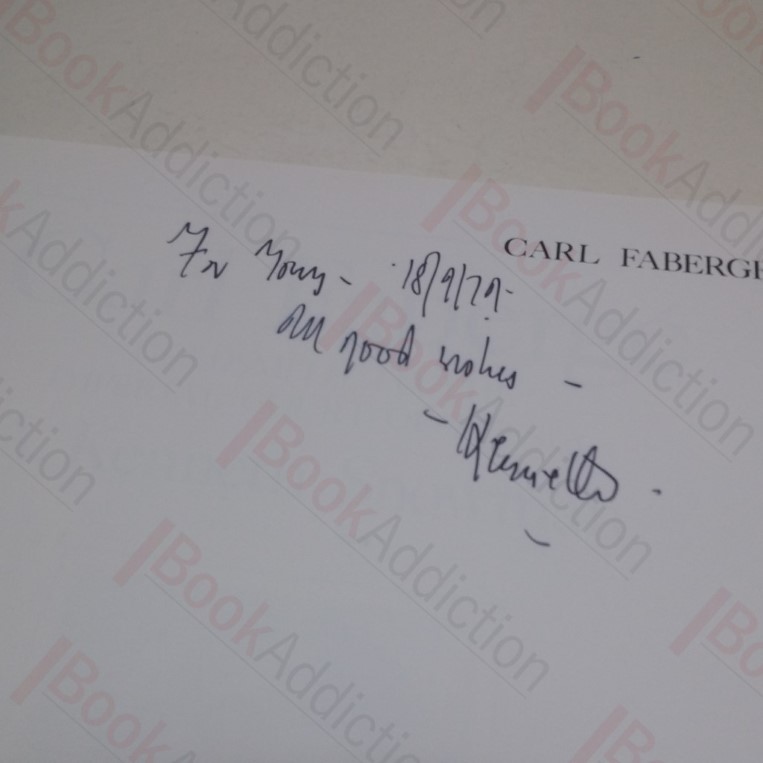 CARL FABERGE
For Tony - 18/9/79-
All good wishes -
- Kenneth.